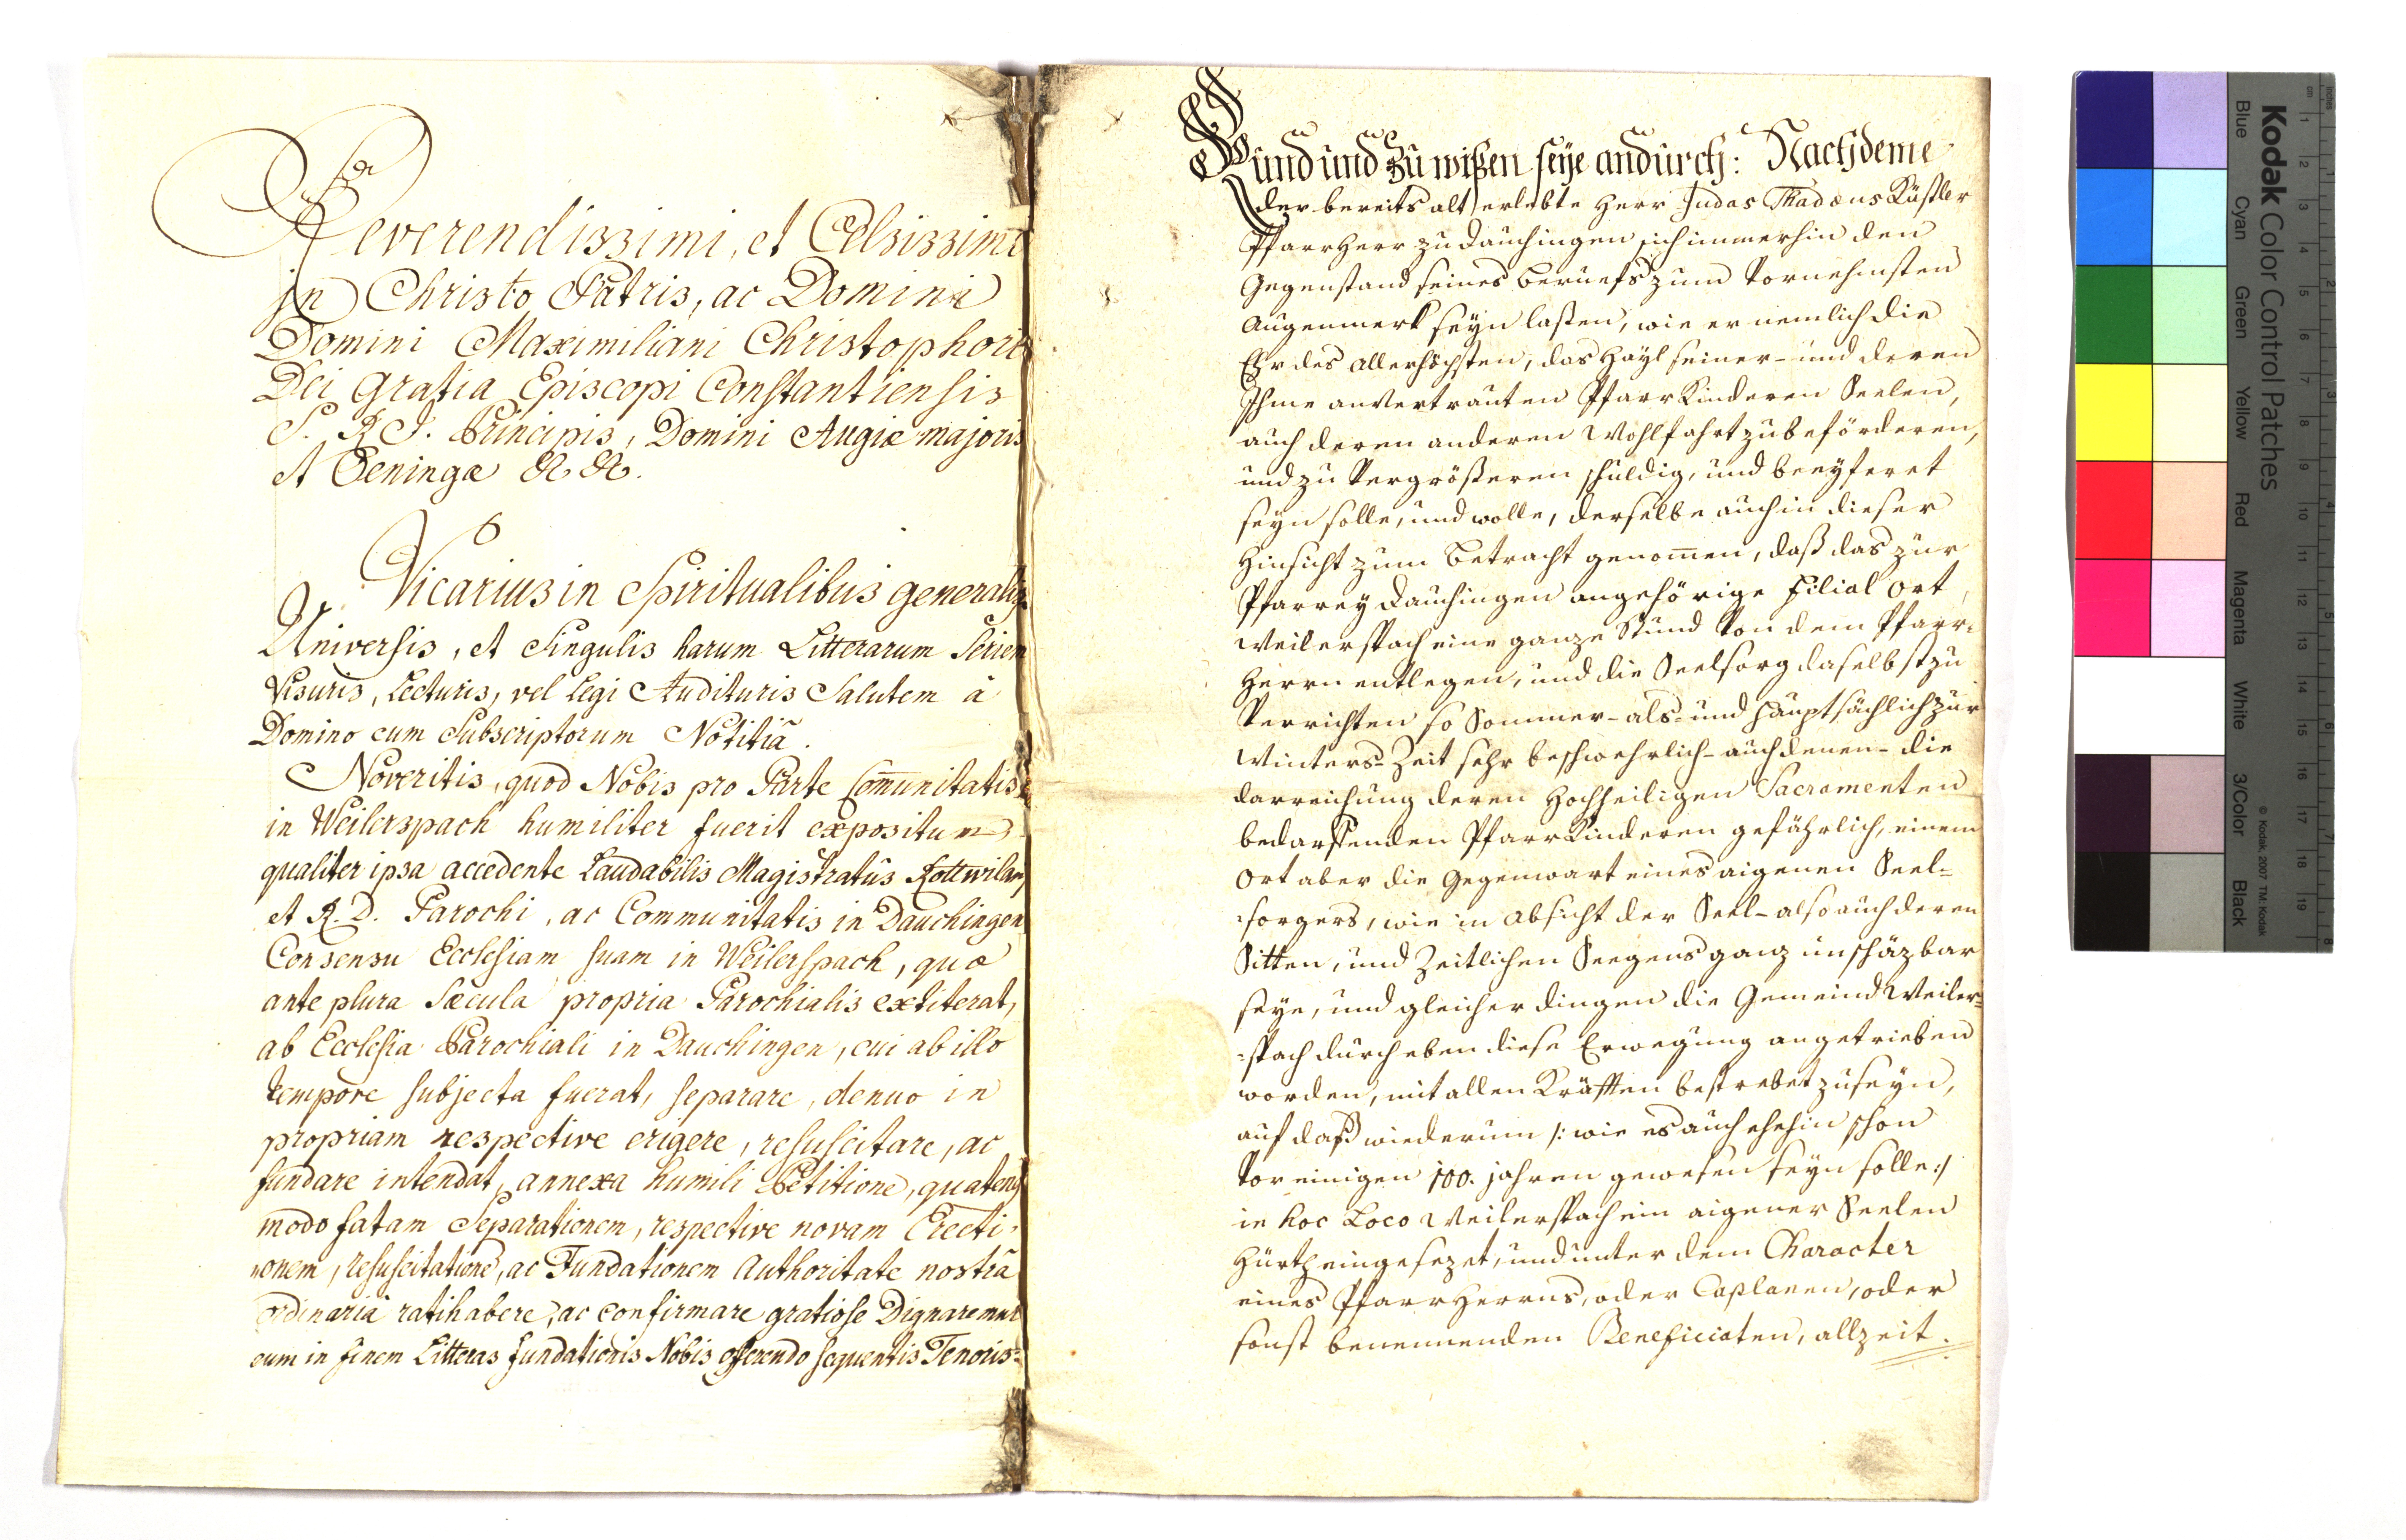 Reverendissimi, et Celsissimi
in Christo Patris, ac Domini
Domini Maximiliani Christophori
Dei Gratia Episcopi Constantiensis
S. R. I. Principis, Domini Augiæ majoris
et Oeningæ &c. &c.
Vicarius in Spiritualibus generalis
Universis, et Singulis harum Litterarum Seriem
Visuris, Lecturis, vel Legi Audituris Salutem à
Domino cum Subscriptorum Notitiâ.
Noveritis, quod Nobis pro Parte Com̄unitatis
in Weilerspach humiliter fuerit expositum
qualiter ipsa accedente Laudabilis Magistratûs Rottwilani
et R. D. Parochi, ac Communitatis in Dauchingen
Consensu Ecclesiam suam in Weilerspach, quæ
ante plura Sæcula propria Parochialis extiterat,
ab Ecclesia Parochiali in Dauchingen, cui ab illo
tempore subjecta fuerat, separare, denuo in
propriam respective erigere, resuscitare, ac
fundare intendat, annexa humili Petitione, quatenus
modo fatam Separationem, respective novam Erecti-
-onem, resuscitationē, ac Fundationem Authoritate nostrâ
ordinariâ ratihabere, ac confirmare gratiose Dignaremur
eum in finem Litteras fundationis Nobis offerendo sequentis Tenoris:
Kund und Zu wißen seÿe andurch: Nachdeme
der bereits alt erlebte Herr Judas Thadæus Küstler
PfarrHerr zu Dauchingen sich immerhin den
Gegenstand seines Beruefs zum Vornehmsten
Augenmerk seyn laßen, wie er nemlich die
Ehr des Allerhöchsten, das Häyl seiner- und deren
Ihme anvertrauten PfarrKinderen Seelen,
auch deren anderen Wohlfahrt zu beförderen,
und zu Vergrößeren schuldig, und beeyferet
seyn solle, und wolle, derselbe auch in dieser
Hinsicht zum Betracht genom̄en, daß das zur
Pfarrey Dauchingen angehörige Filial Ort
Weilerspach eine ganze Stund Von dem Pfarr-
Herrn entlegen, und die Seelsorg daselbst zu
Verrichten so Sommer- als- und hauptsächlich zur
Winters-Zeit sehr beschwehrlich- auch denen- die
darreichung deren Hochheiligen Sacramenten
bedarffenden PfarrKinderen gefährlich, einem
Ort aber die Gegenwart eines aigenen Seel-
-sorgers, wie in Absicht der Seel- also auch deren
Sitten, und Zeitlichen Seegens ganz unschäzbar
seye, und gleicher dingen die Gemeind Weiler-
-spach durch eben diese Erwegung angetrieben
worden, mit allen Kräfften bestrebet zu seyn,
auf daß wiederum /: wie es auch ehehin schon
Vor einigen 100. jahren gewesen seyn solle :/
in hoc Loco Weilerspach ein aigener Seelen
Hürth eingesezet, und unter dem Character
eines PfarrHerrns, oder Caplanen, oder
sonst benennenden Beneficiaten, allzeit.
Kodak Color Control Patches
Blue Cyan Green Yellow Red Magenta White 3/Color Black
© Kodak, 2007 TM: Kodak
inches 1 2 3 4 5 6 7 8
cm 1 2 3 4 5 6 7 8 9 10 11 12 13 14 15 16 17 18 19